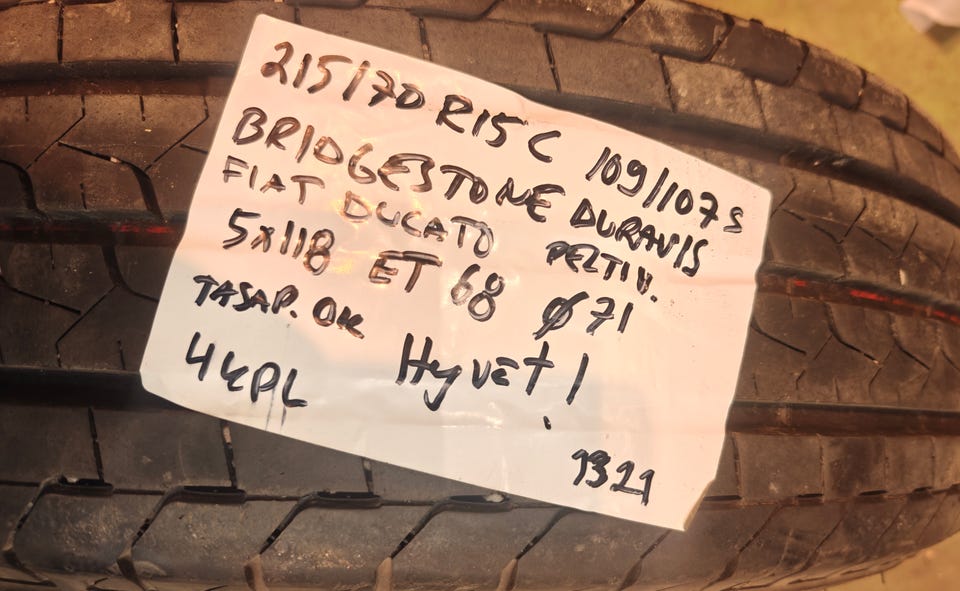 215/70 R15 C 109/107 S
BRIDGESTONE DURAVIS
FIAT DUCATO PELTIV.
5x118 ET 68 Ø 71
TASAP. OK
4 KPL Hyvät!
1321